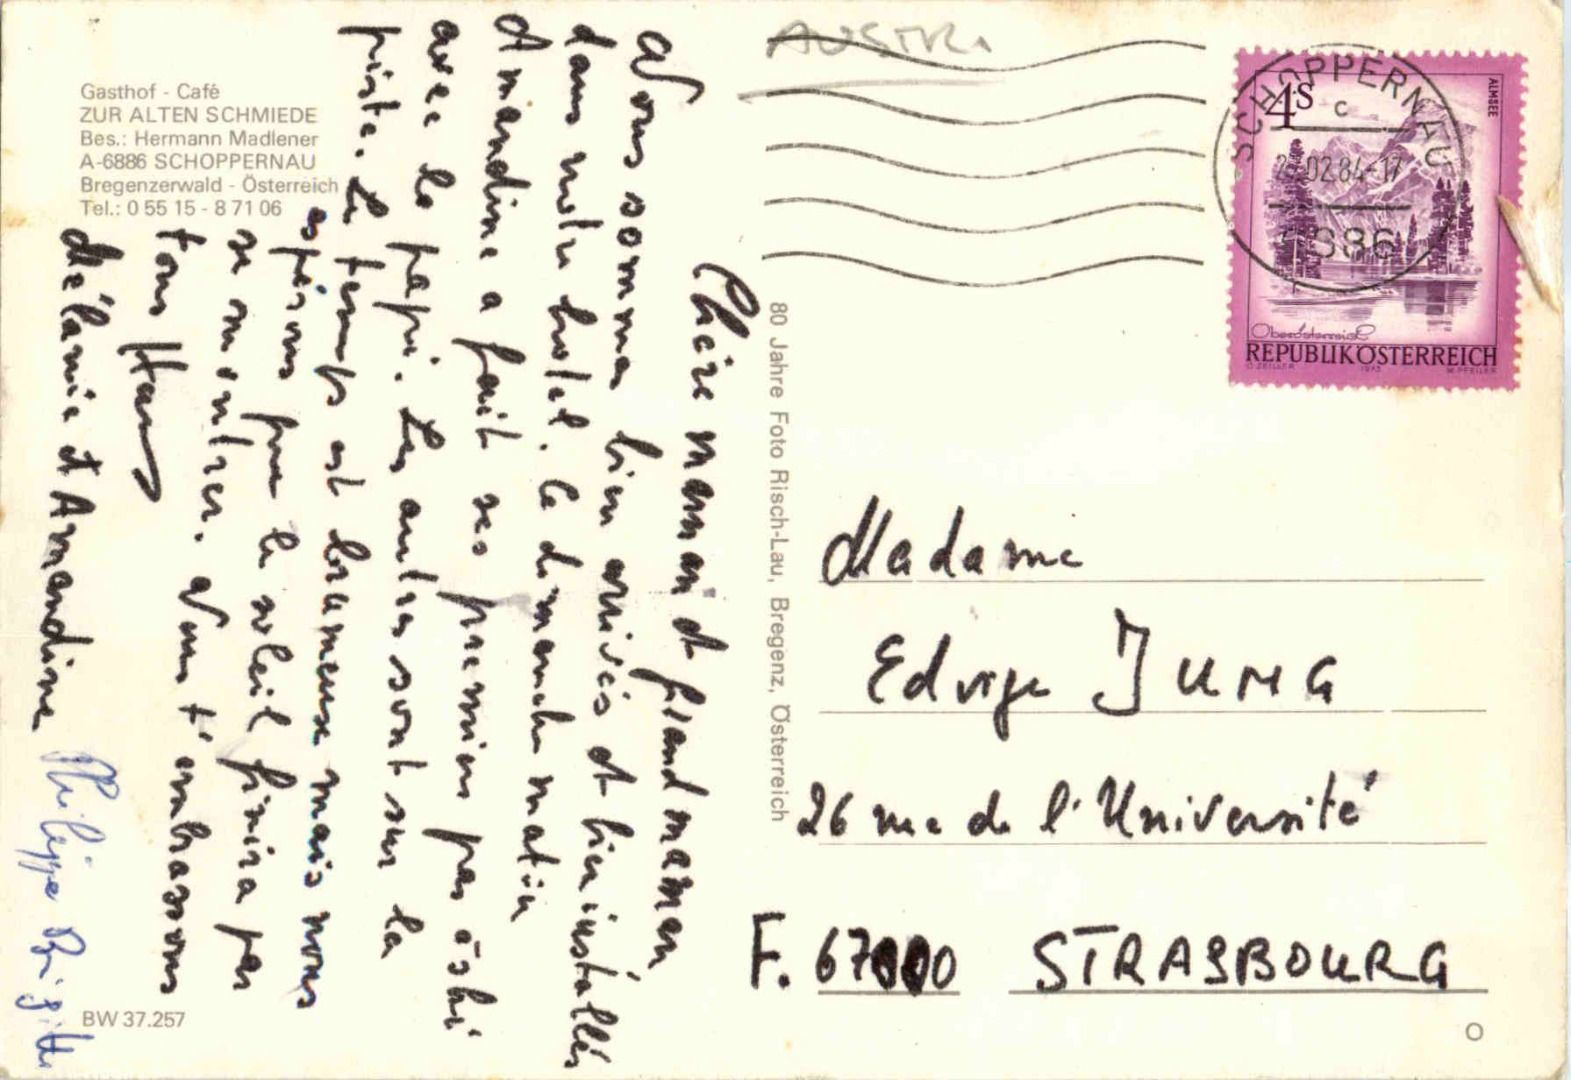 Gasthof - Café
ZUR ALTEN SCHMIEDE
Bes.: Hermann Madlener
A-6886 SCHOPPERNAU
Bregenzerwald - Österreich
Tel.: 0 55 15 - 8 71 06
Chère maman et grand maman
Nous sommes bien arrivés et bien installés
dans notre hotel. Ce dimanche matin
Amandine a fait ses premiers pas à ski
avec le papi. Les autres sont sur la
piste. Le temps est brumeux mais nous
espérons que le soleil finira par
se montrer. Nous t'embrassons
tous
Mélanie et Amandine Philippe Brigitte
BW 37.257
80 Jahre Foto Risch-Lau, Bregenz, Österreich
AUSTR.
SCHOPPERNAU
c
02.84-17
6886
4S
ALMSEE
Oberösterreich
REPUBLIK ÖSTERREICH
O. ZEILLER 1973 W. PFEILER
Madame
Edvige JUNG
26 rue de l'Université
F. 67000 STRASBOURG
O